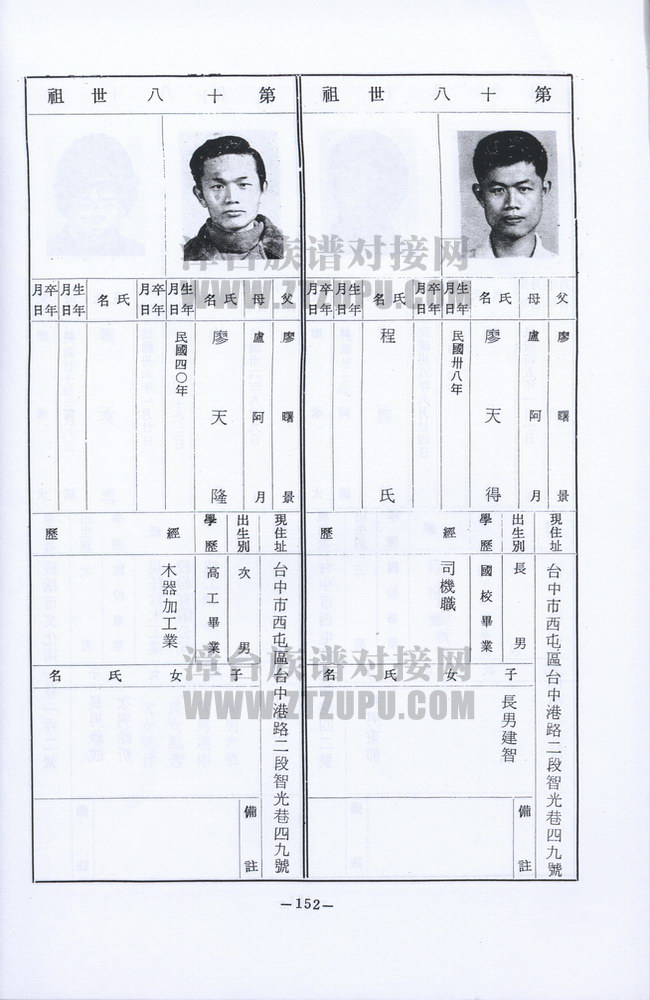 第十八世祖
父 廖曙景
母 盧阿月
氏名 廖天得
生年月日 民國卅八年
卒年月日
氏名 程氏
生年月日
卒年月日
現住址 台中市西屯區台中港路二段智光巷四九號
出生別 長男
學歷 國校畢業
經歷 司機職
子女氏名
長男建智
備註
第十八世祖
父 廖曙景
母 盧阿月
氏名 廖天隆
生年月日 民國四〇年
卒年月日
氏名
生年月日
卒年月日
現住址 台中市西屯區台中港路二段智光巷四九號
出生別 次男
學歷 高工畢業
經歷 木器加工業
子女氏名
備註
—152—
漳台族谱对接网
WWW.ZTZUPU.COM
漳台族谱对接网
WWW.ZTZUPU.COM